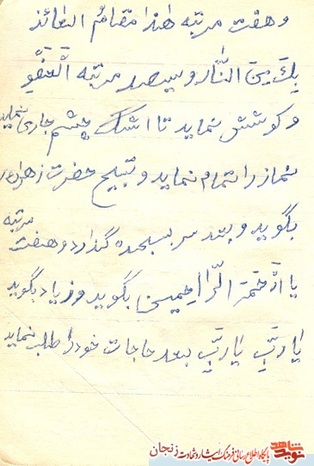 و هفت مرتبه هذا مقام العائذ
بك من النّار و سیصد مرتبه العفو
و کوشش نماید تا اشک چشم جاری نماید
نماز را تمام نماید و تسبیح حضرت زهرا
بگوید و بعد سر بسجده گذارد و هفت مرتبه
یا ارحمَ الرّاحمین بگوید و زیاد بگوید
یا ربِّ یا ربِّ بعد حاجات خود را طلب نماید
نوید شاهد
پایگاه اطلاع رسانی فرهنگ ایثار و شهادت زنجان